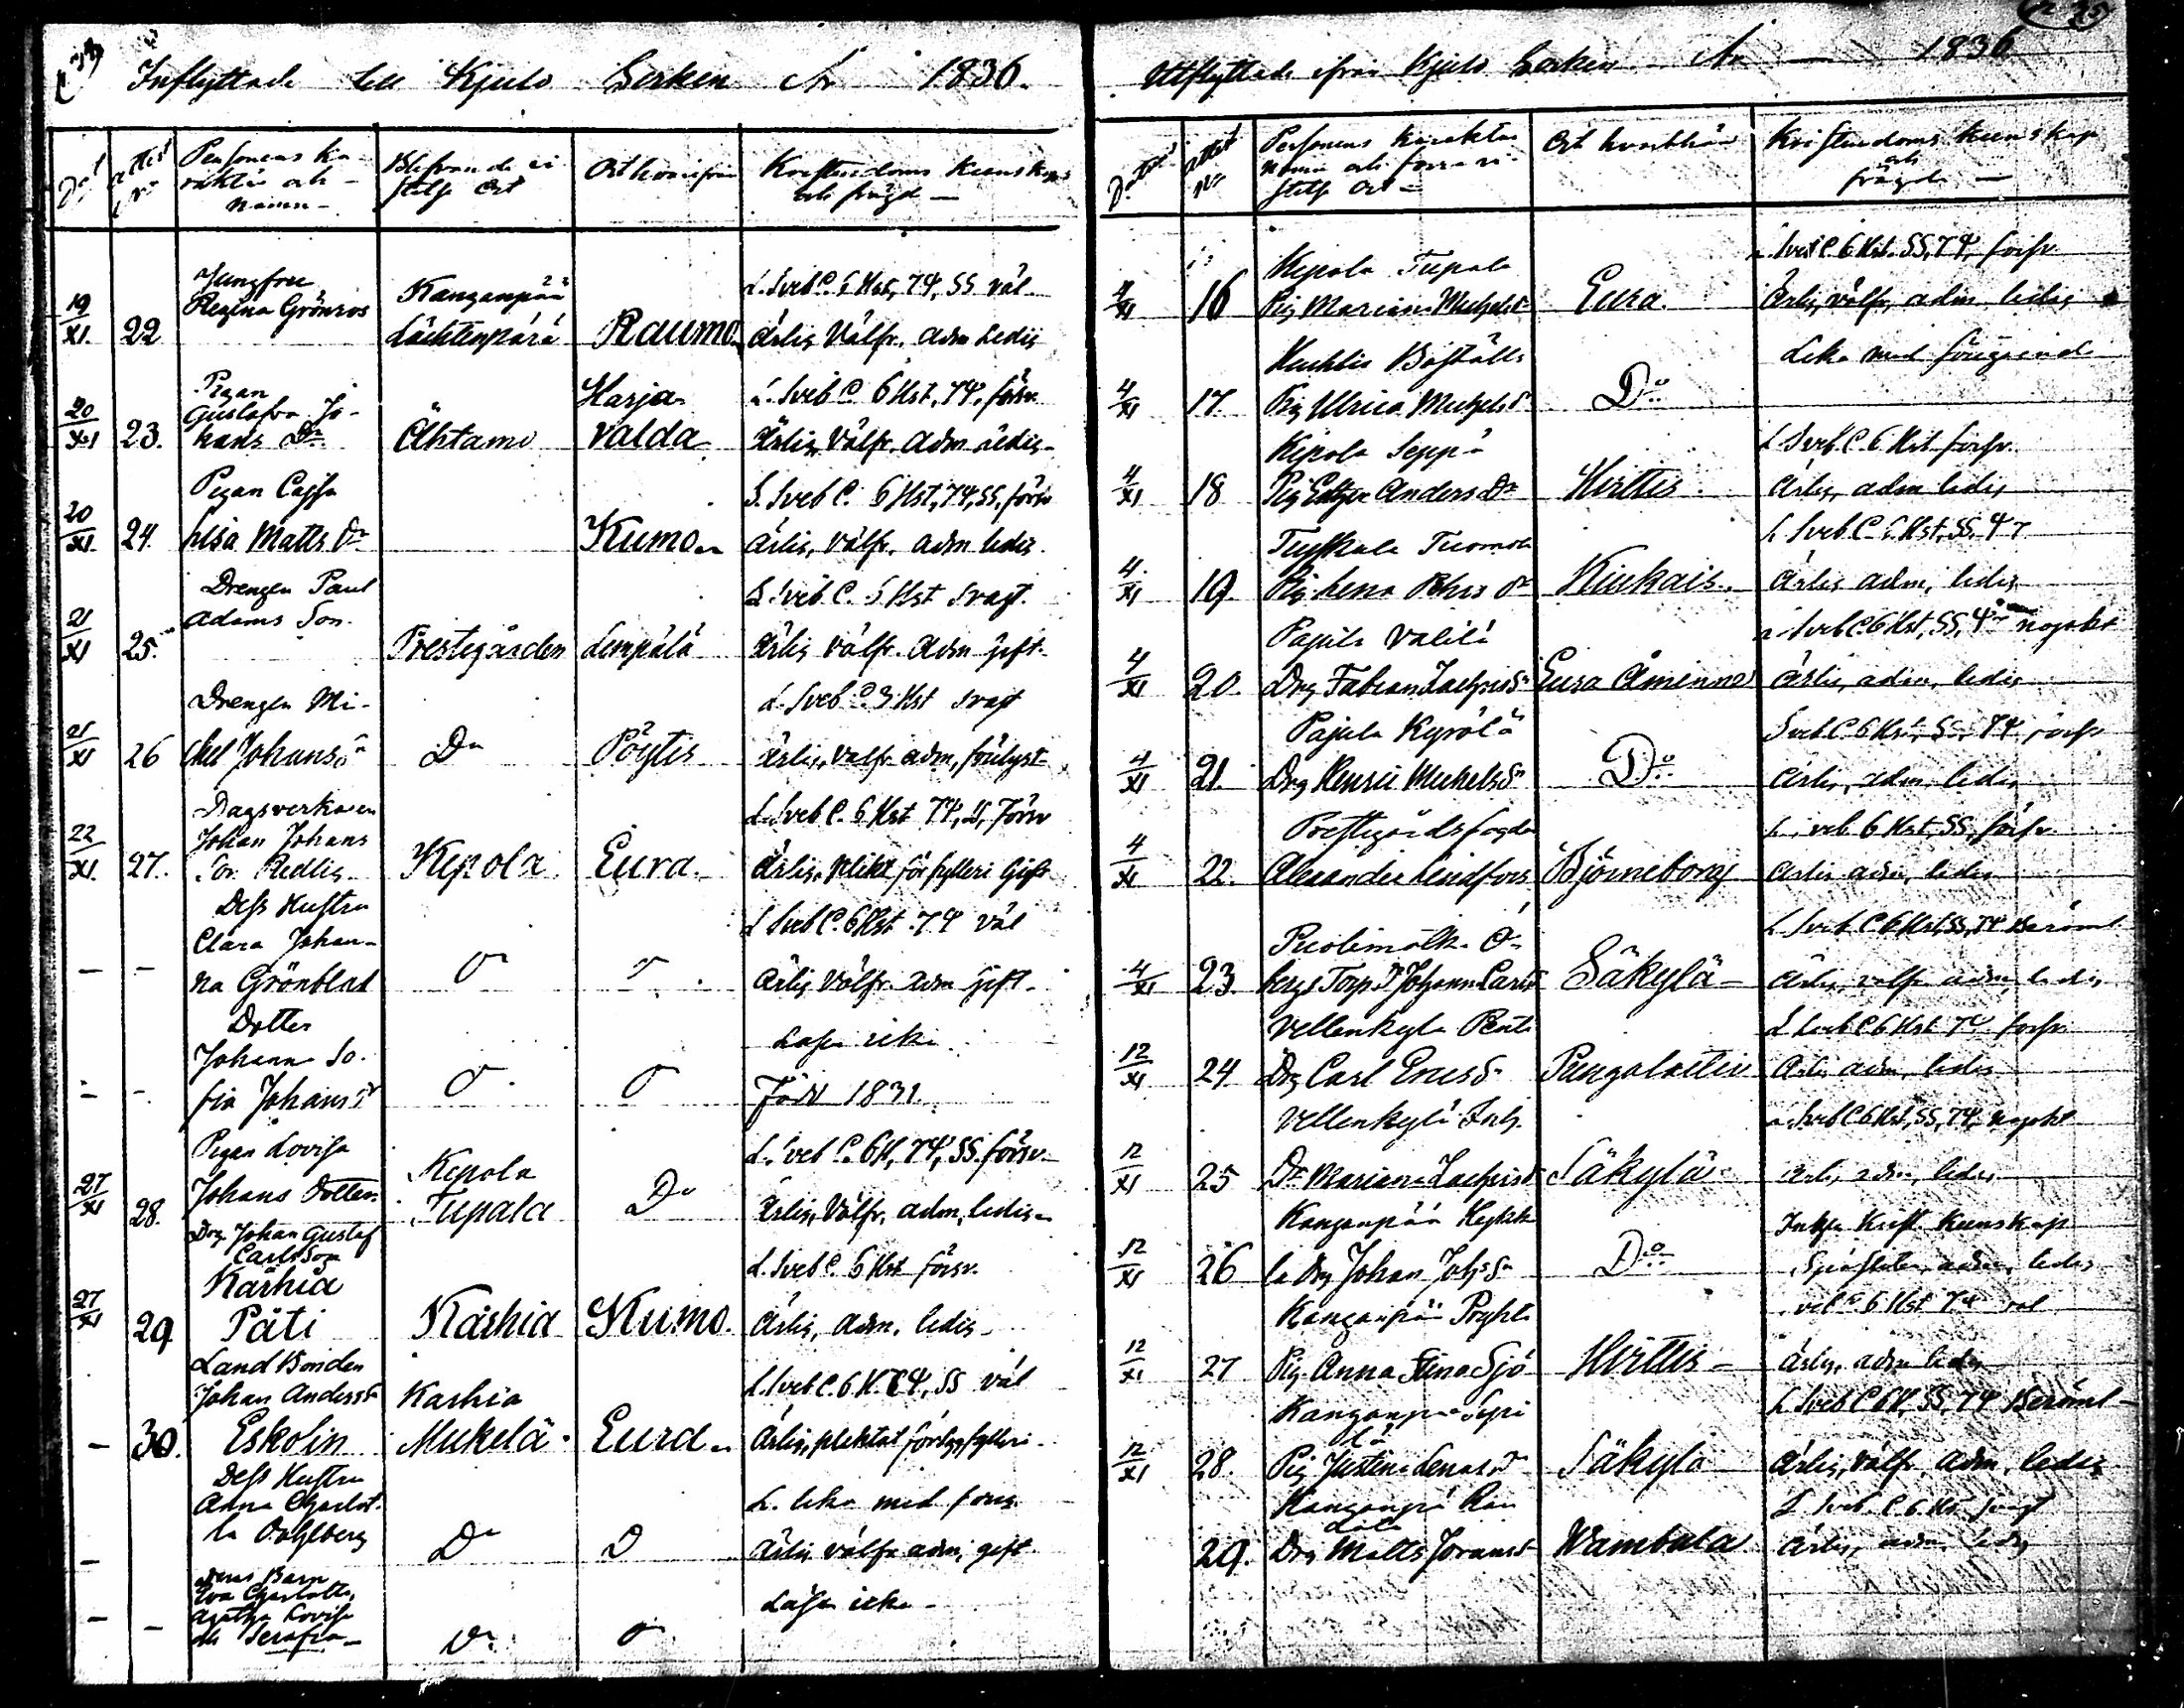 Inflyttade till Kjulo Socken År 1836.
Dat
attest
No
Personens ka-
raktär och
Namn
Blifvande vi
stelse Ort
Ort hvarifrån
Kristendoms Kunskap
och frägd
19/XI. 22
Jungfru
Regina Grönros
Kanganpää
Lächtenpärä
Raumo
L. Sveb C. 6 Hst, 74, SS väl
ärlig Välfr. adm Ledig
20/XI 23.
Pigan
Gustafva Jo-
hans Dr
Ähtamo
Harja-
valda
L. Sveb C 6 Hst, 74, försv
ärlig, Välfr. adm ledig
20/XI. 24.
Pigan Cajsa
Lisa Matts Dr
Kumo
L. Sveb C. 6 Hst, 74, SS, försv
ärlig, välfr. adm ledig.
21/XI 25.
Drengen Paul
Adams Son.
Prestegården
Lempälä
L. Sveb. C. 6 Hst svagt.
ärlig välfr. adm gift.
21/XI 26
Drengen Mi-
chel Johans Sn
Do
Pöytis
L. Sveb C. 3 Hst svagt
ärlig, välfr adm, förlyst
22/XI. 27.
Dagsverkaren
Johan Johans
Son Redlig
Kepola
Eura
L. Sveb C. 6 Hst 74, SS, Försv
ärlig, Plikt för fylleri Gift
Dess Hustru
Clara Johan-
na Grönblad
L Sveb C. 6 Hst 74 väl
ärlig Välfr. adm gift
Dotter
Johanna So-
fia Johans Dr
Läser icke
Född 1831.
27/XI 28.
Pigan Lovisa
Johans Dotter
Kepola
Tupala
Do
L. Sveb C. 6 H, 74, SS försv
ärlig, Välfr, adm, ledig
27/XI 29
Drg Johan Gustaf
Carls Son
Karhia
Päti
Karhia
Kumo.
L. Sveb C. 6 Hst försv.
ärlig, adm. ledig
30.
Land Bonden
Johan Anders Sn
Eskolin
Karhia
Mukelä
Eura
L. Sveb C. 6 H. 74, SS väl
ärlig, pliktat för fylleri
Dess Hustru
Anna Charlot-
ta Dahlberg
Do
D
L. lika med föreg.
ärlig välfr adm, gift
Deras Barn
Eva Charlotta,
Agatha Lovisa
och Serafia
Do
Läser icke
Utflyttade ifrån Kjulo Socken År 1836
Datum
attest
No
Personens karaktär
namn och förra vi-
stelse Ort
Ort hvarthän
Kristendoms kunskap
och
frägd
4/XI 16
Kepola Tupala
Pig Mariana Michels Dr
Eura.
Sveb C 6 Hst. SS, 74, försv
Ärlig, välfr, adm, ledig
4/XI 17.
Huhtis Boställe
Pig Ulrica Michels Dr
Do
Lika med föregående
4/XI 18
Kepola Seppä
Pig Anders Dr
Hirttis
L Sveb C. 6 Hst försv.
ärlig, adm ledig
4/XI 19.
Tuiskula Tuomola
Pig Lena Dr
Kiukais.
L Sveb C. 6 Hst, SS,
ärlig adm, ledig
4/XI 20.
Pajula Välilä
Drg Fabian Zachris Sn
Eura Åminne
Sveb C. 6 Hst, SS, nöjakt
ärlig, adm, ledig
4/XI 21.
Pajula Kyrölä
Drg Henric Michels Sn
Do
Sveb C 6 Hst, SS, 74 försv
ärlig, adm, ledig
4/XI 22.
Prestegårds fogden
Alexander Lindfors
Björneborg
L. Sveb 6 Hst, SS, försv
ärlig adm, ledig
4/XI 23.
Puolimatka
bergs Torp Dr Johanna Carls Dr
Säkylä
L Sveb C 6 Hst, SS, 74 Berömt
Ärlig, välfr adm, ledig
12/XI 24
Vellenkylä Pentti
Drg Carl Ericss Sn
Pungalaitio
L Sveb C 6 Hst 74 försv
Ärlig adm, ledig
12/XI 25
Vellenkylä Inh.
Dr Mariana Zachris Dr
Säkylä
Sveb C 6 Hst, SS, 74, nöjakt
ärlig, adm, ledig
12/XI 26
Kanganpää Heikki-
la Drg Johan Johs Sn
Do
Kunskap
adm, ledig
12/XI 27
Kanganpää
Pig Anna Stina Sjö
Hirttis
Sveb C 6 Hst 74 väl
Ärlig, adm ledig
12/XI 28.
Kanganpä Sepi
lä
Pig Justina Lenas Dr
Säkylä
L Sveb C 6 H, SS, 74 Berömt
Ärlig, välfr, adm, ledig
29.
Kanganpä
Drg Matts
Wambula
L Sveb. C. 6 Hst svagt
Ärlig, adm, ledig